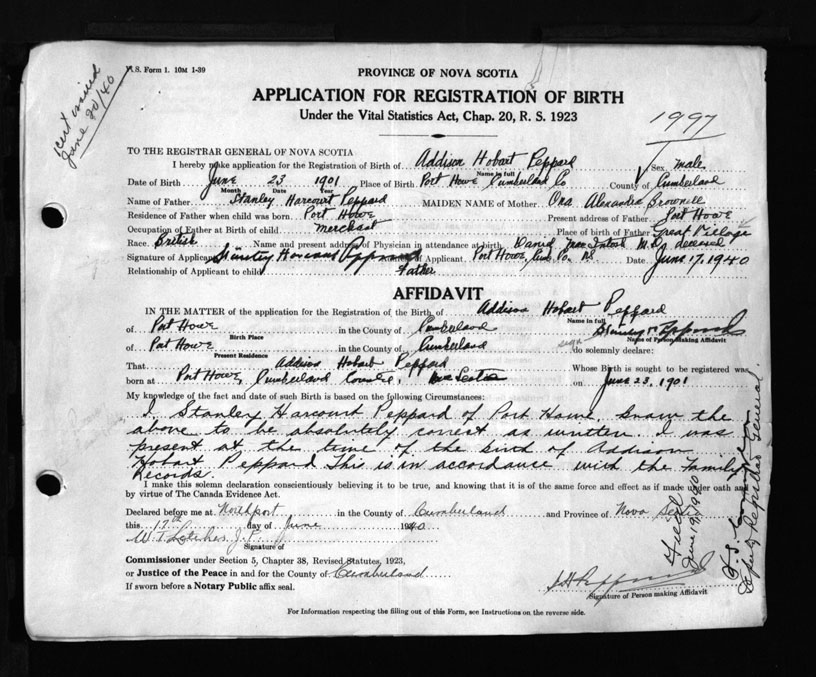 V.S. Form 1. 10M 1-39
Cert issued
June 20/40
PROVINCE OF NOVA SCOTIA
APPLICATION FOR REGISTRATION OF BIRTH
Under the Vital Statistics Act, Chap. 20, R. S. 1923
1997
TO THE REGISTRAR GENERAL OF NOVA SCOTIA
I hereby make application for the Registration of Birth of Addison Hobart Peppard Sex male
Name in full
Date of Birth June 23 1901 Place of Birth Port Howe Cumberland Co County of Cumberland
Month Date Year
Name of Father Stanley Harcourt Peppard MAIDEN NAME of Mother Ora Alexandra Brownell
Residence of Father when child was born Port Howe Present address of Father Port Howe
Occupation of Father at Birth of child merchant Place of birth of Father Great Village
Race British Name and present address of Physician in attendance at birth David M.D. deceased
Signature of Applicant Stanley Harcourt Peppard of Applicant Port Howe, Cum. Co. NS Date June 17, 1940
Relationship of Applicant to child Father
AFFIDAVIT
IN THE MATTER of the application for Registration of the Birth of Addison Hobart Peppard
Name in full
of Port Howe in the County of Cumberland Stanley H Peppard
Birth Place Name of Person Making Affidavit
of Port Howe in the County of Cumberland do solemnly declare:
Present Residence
That Addison Hobart Peppard Whose Birth is sought to be registered was
born at Port Howe, Cumberland Nova Scotia on June 23, 1901
My knowledge of the fact and date of such Birth is based on the following Circumstances:
I, Stanley Harcourt Peppard of Port Howe, know the
above to be absolutely correct as written. I was
present at the time of the birth of Addison
Hobart Peppard This is in accordance with the Family
Records.
I make this solemn declaration conscientiously believing it to be true, and knowing that it is of the same force and effect as if made under oath and
by virtue of The Canada Evidence Act.
Declared before me at Northport in the County of Cumberland and Province of Nova Scotia
this 17th day of June 1940
J.P.
Signature of
Commissioner under Section 5, Chapter 38, Revised Statutes, 1923,
or Justice of the Peace in and for the County of Cumberland
If sworn before a Notary Public affix seal.
S H Peppard
Signature of Person making Affidavit
Filed
June 19, 1940
Deputy Registrar General.
For Information respecting the filling out of this Form, see Instructions on the reverse side.